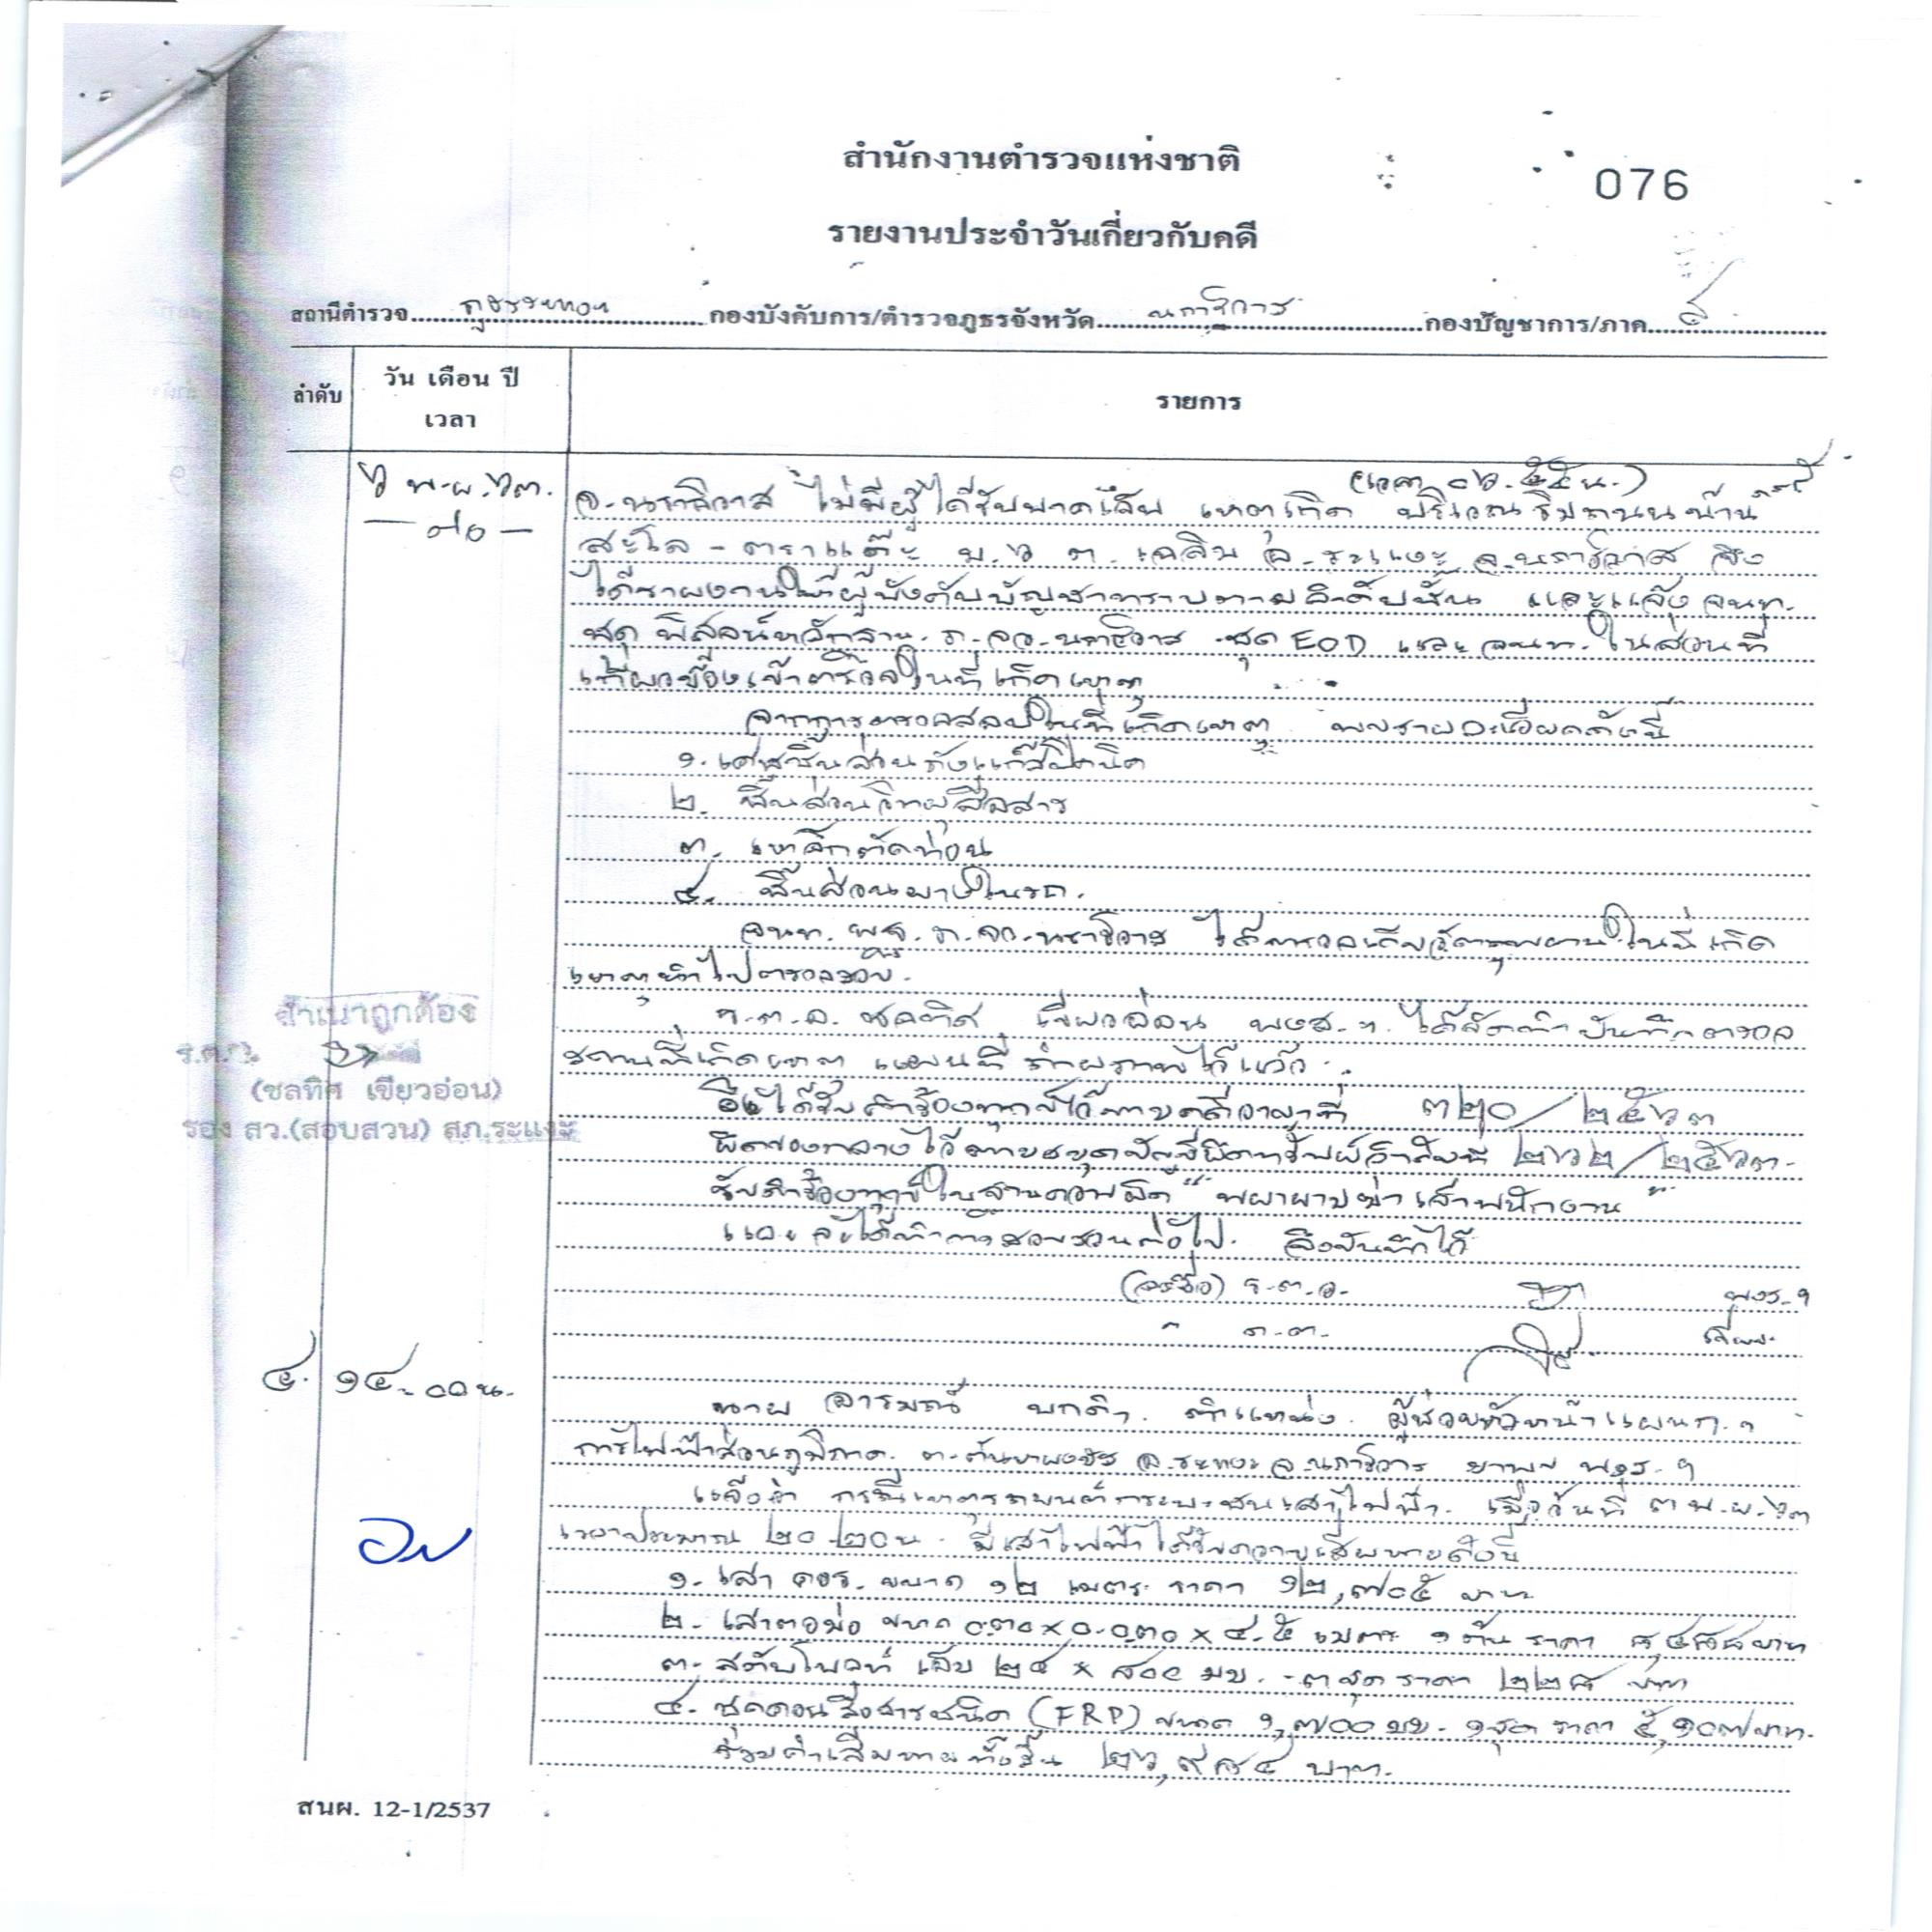 สำนักงานตำรวจแห่งชาติ
076
รายงานประจำวันเกี่ยวกับคดี
สถานีตำรวจ กองบังคับการ/ตำรวจภูธรจังหวัด นราธิวาส กองบัญชาการ/ภาค ๙
ลำดับ
วัน เดือน ปี
เวลา
รายการ
๖ พ.ย. ๖๓.
จ.นราธิวาส ไม่มีผู้ได้รับบาดเจ็บ เหตุเกิด บริเวณริมถนนบ้าน
สะโล - ตราแด๊ะ ม.๖ ต.เฉลิม อ.ระแงะ จ.นราธิวาส จึง
ได้รายงานให้ผู้บังคับบัญชาทราบตามลำดับชั้น และแจ้ง จนท.
ชุด พิสูจน์หลักฐาน ภ.จว.นราธิวาส ชุด EOD และ จนท. ในส่วนที่
เกี่ยวข้องเข้าตรวจในที่เกิดเหตุ
จากการตรวจสอบในที่เกิดเหตุ พบรายละเอียดดังนี้
๑. เศษชิ้นส่วนถังแก๊สปิคนิค
๒. ชิ้นส่วนวิทยุสื่อสาร
๓. เหล็กตัดท่อน
๔. ชิ้นส่วนยางในรถ.
จนท. พฐ. ภ.จว.นราธิวาส ได้ตรวจเก็บวัตถุพยานในที่เกิด
เหตุนำไปตรวจสอบ.
สำเนาถูกต้อง
ร.ต.อ. ชลทิศ เขียวอ่อน พงส.ฯ ได้จัดทำบันทึกตรวจ
สถานที่เกิดเหตุ แผนที่ ถ่ายภาพไว้แล้ว
(ชลทิศ เขียวอ่อน)
รอง สว.(สอบสวน) สภ.ระแงะ
ได้รับคำร้องทุกข์ไว้ตามคดีอาญาที่ ๓๒๐/๒๕๖๓
ยึดของกลางไว้ตามสมุดบัญชียึดทรัพย์ลำดับที่ ๒๖๒/๒๕๖๓
รับคำร้องทุกข์ในฐานความผิด "พยายามฆ่าเจ้าพนักงาน"
และจะได้ทำการสอบสวนต่อไป จึงบันทึกไว้
(ลงชื่อ) ร.ต.อ. พงส.ฯ
เขียน
๔. ๑๔.๐๐ น.
นาย อารมณ์ ตำแหน่ง ผู้ช่วยหัวหน้าแผนก ฯ
การไฟฟ้าส่วนภูมิภาค ต.ตันหยงมัส อ.ระแงะ จ.นราธิวาส มาพบ พงส. ฯ
แจ้งว่า กรณีเหตุรถยนต์กระบะชนเสาไฟฟ้า เมื่อวันที่ ๓ พ.ย. ๖๓
เวลาประมาณ ๒๐.๒๐ น. มีเสาไฟฟ้าได้รับความเสียหายดังนี้
๑. เสา คอร. ขนาด ๑๒ เมตร ราคา ๑๒,๗๐๕ บาท
๒. เสาตอม่อ ขนาด ๐.๓๐ x ๐.๓๐ x ๔.๕ เมตร ๑ ต้น ราคา บาท
๓. สตับโบลท์ ๓ ชุด ราคา ๒๒๘ บาท
๔. ชุดคอนสื่อสารชนิด (FRP) ขนาด ๑,๗๐๐ มม. ๑ ชุด ราคา ๕,๑๐๗ บาท.
รวมค่าเสียหายทั้งสิ้น ๒๖,๙๘๔ บาท.
สนผ. 12-1/2537